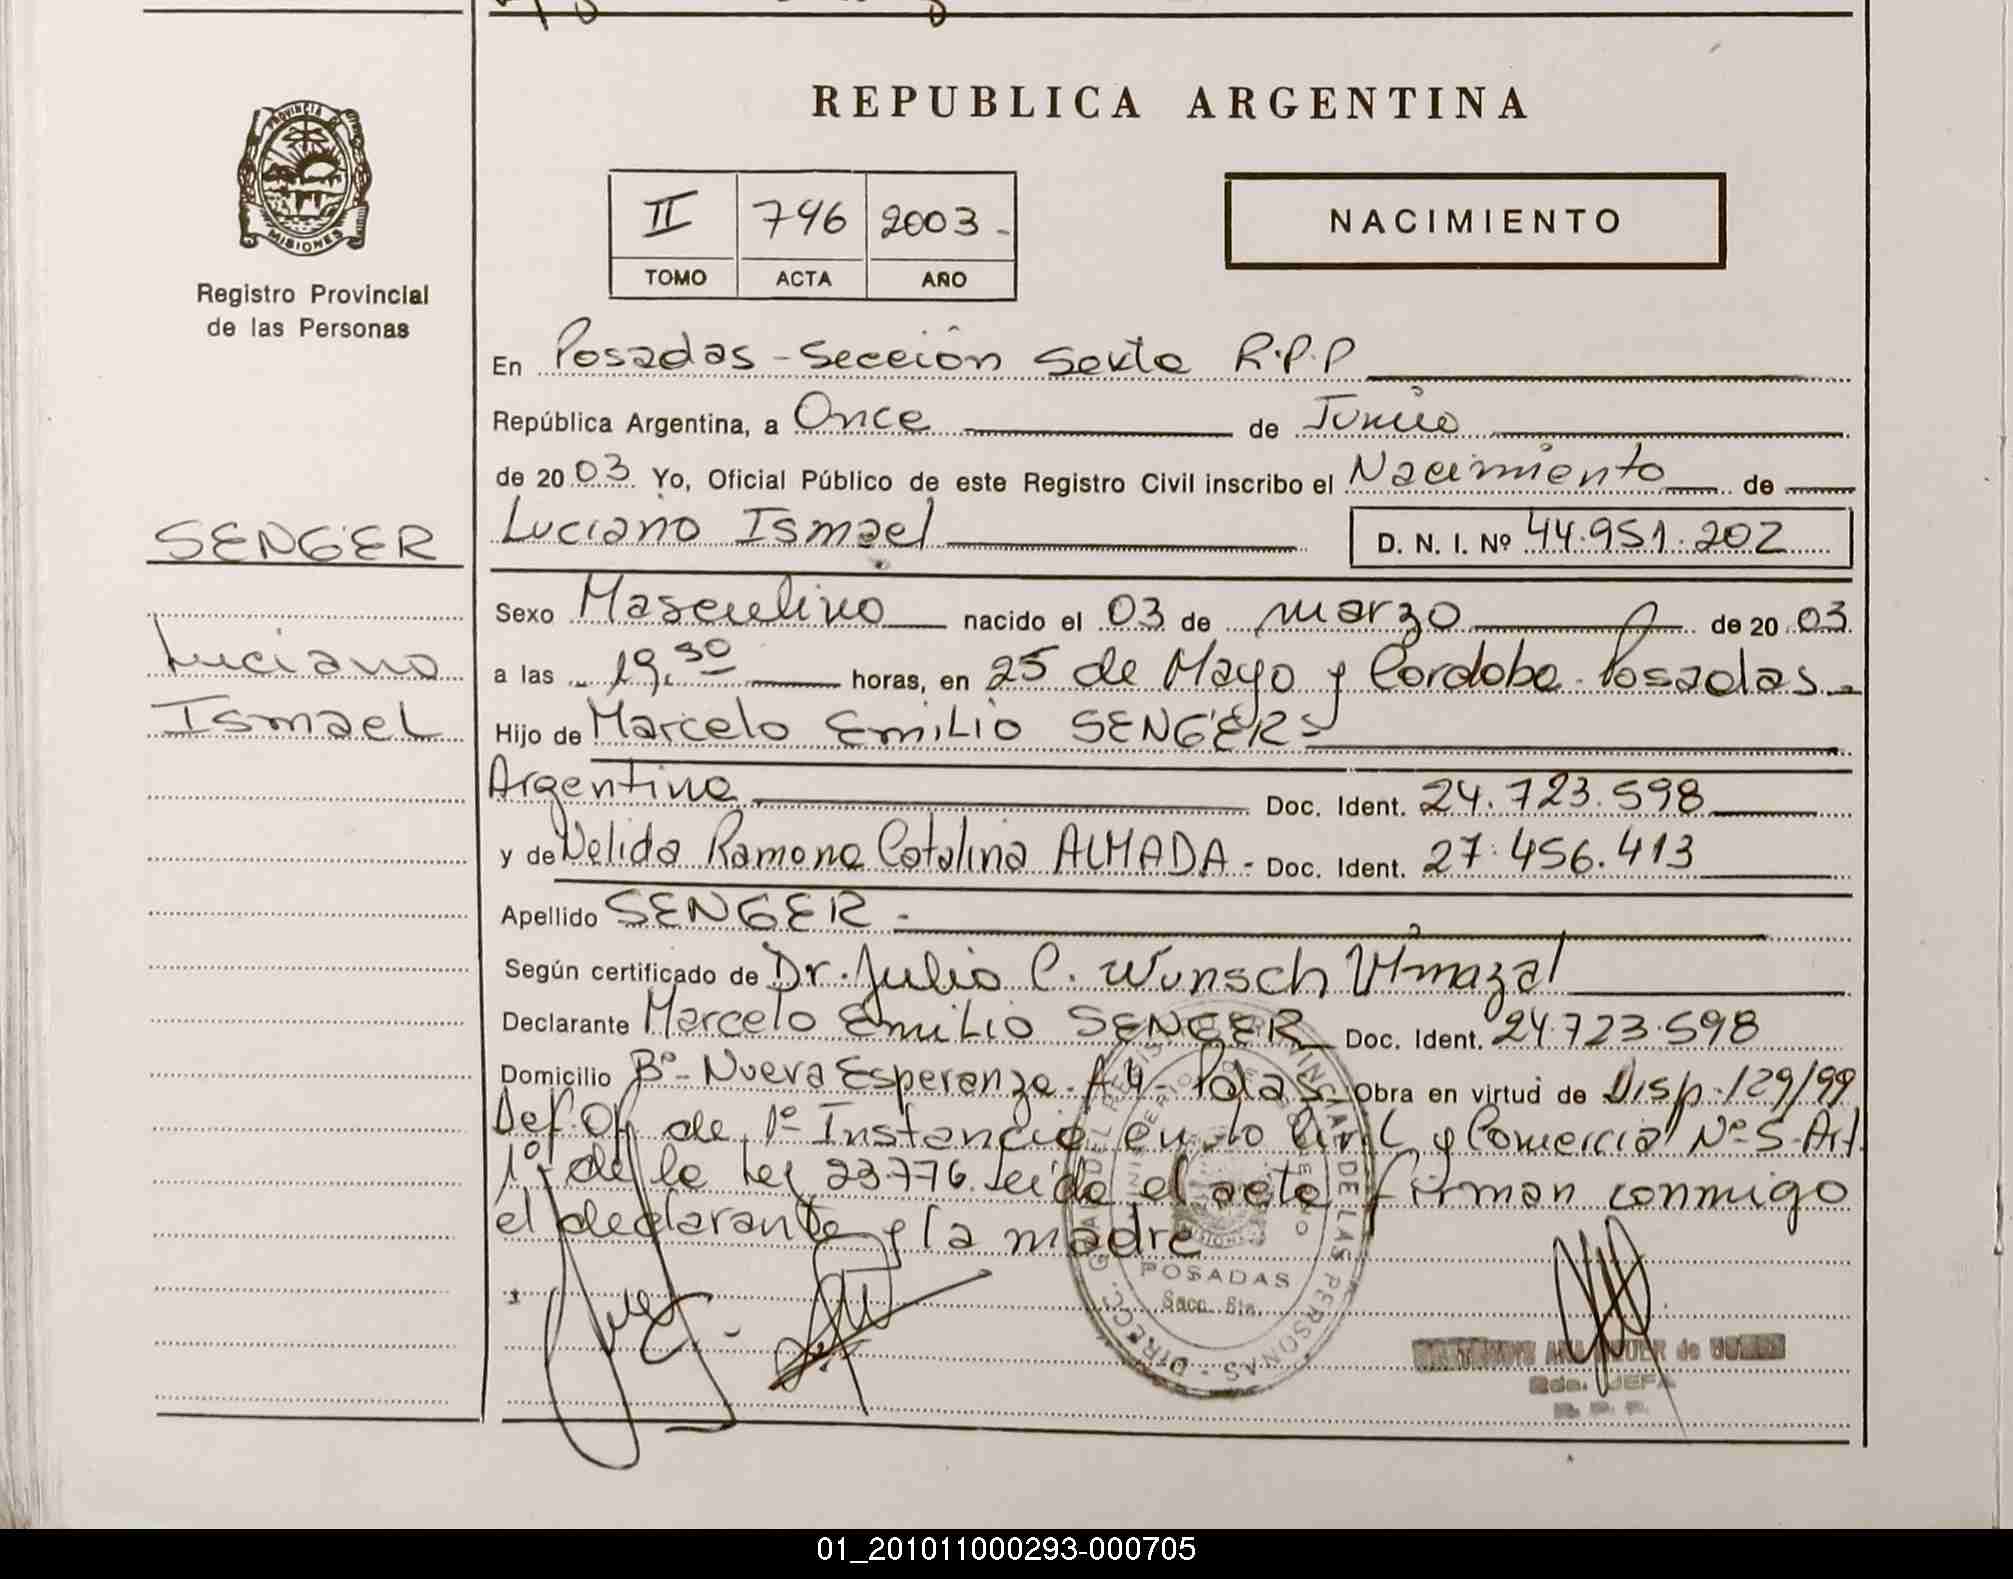 REPUBLICA ARGENTINA
PROVINCIA DE
MISIONES
Registro Provincial
de las Personas
II 746 2003 -
TOMO ACTA AÑO
NACIMIENTO
En Posadas - Sección Sexta R.P.P
República Argentina, a Once de Junio
de 2003 Yo, Oficial Público de este Registro Civil inscribo el Nacimiento de
SENGER
Luciano Ismael
D. N. I. Nº 44.951.202
Luciano
Ismael
Sexo Masculino nacido el 03 de marzo de 2003
a las 19.30 horas, en 25 de Mayo y Cordoba - Posadas -
Hijo de Marcelo Emilio SENGER -
Argentino Doc. Ident. 24.723.598
y de Nelida Ramona Catalina ALMADA - Doc. Ident. 27.456.413
Apellido SENGER -
Según certificado de Dr. Julio C. Wunsch
Declarante Marcelo Emilio SENGER Doc. Ident. 24.723.598
Domicilio Bº - Nueva Esperanza - A 4 - Pdas - Obra en virtud de Disp. 129/99
Def. Of. de 1º Instancia en lo Civil y Comercial Nº 5 - Art.
1º de la ley 23.776. Leida el acta firman conmigo
el declarante y la madre
DIRECC. GRAL. DEL REGISTRO PROVINCIAL DE LAS PERSONAS
MINISTERIO DE GOBIERNO
MISIONES
POSADAS
Secc. 6ta.
de
JEFA
R. P. P.
01_201011000293-000705